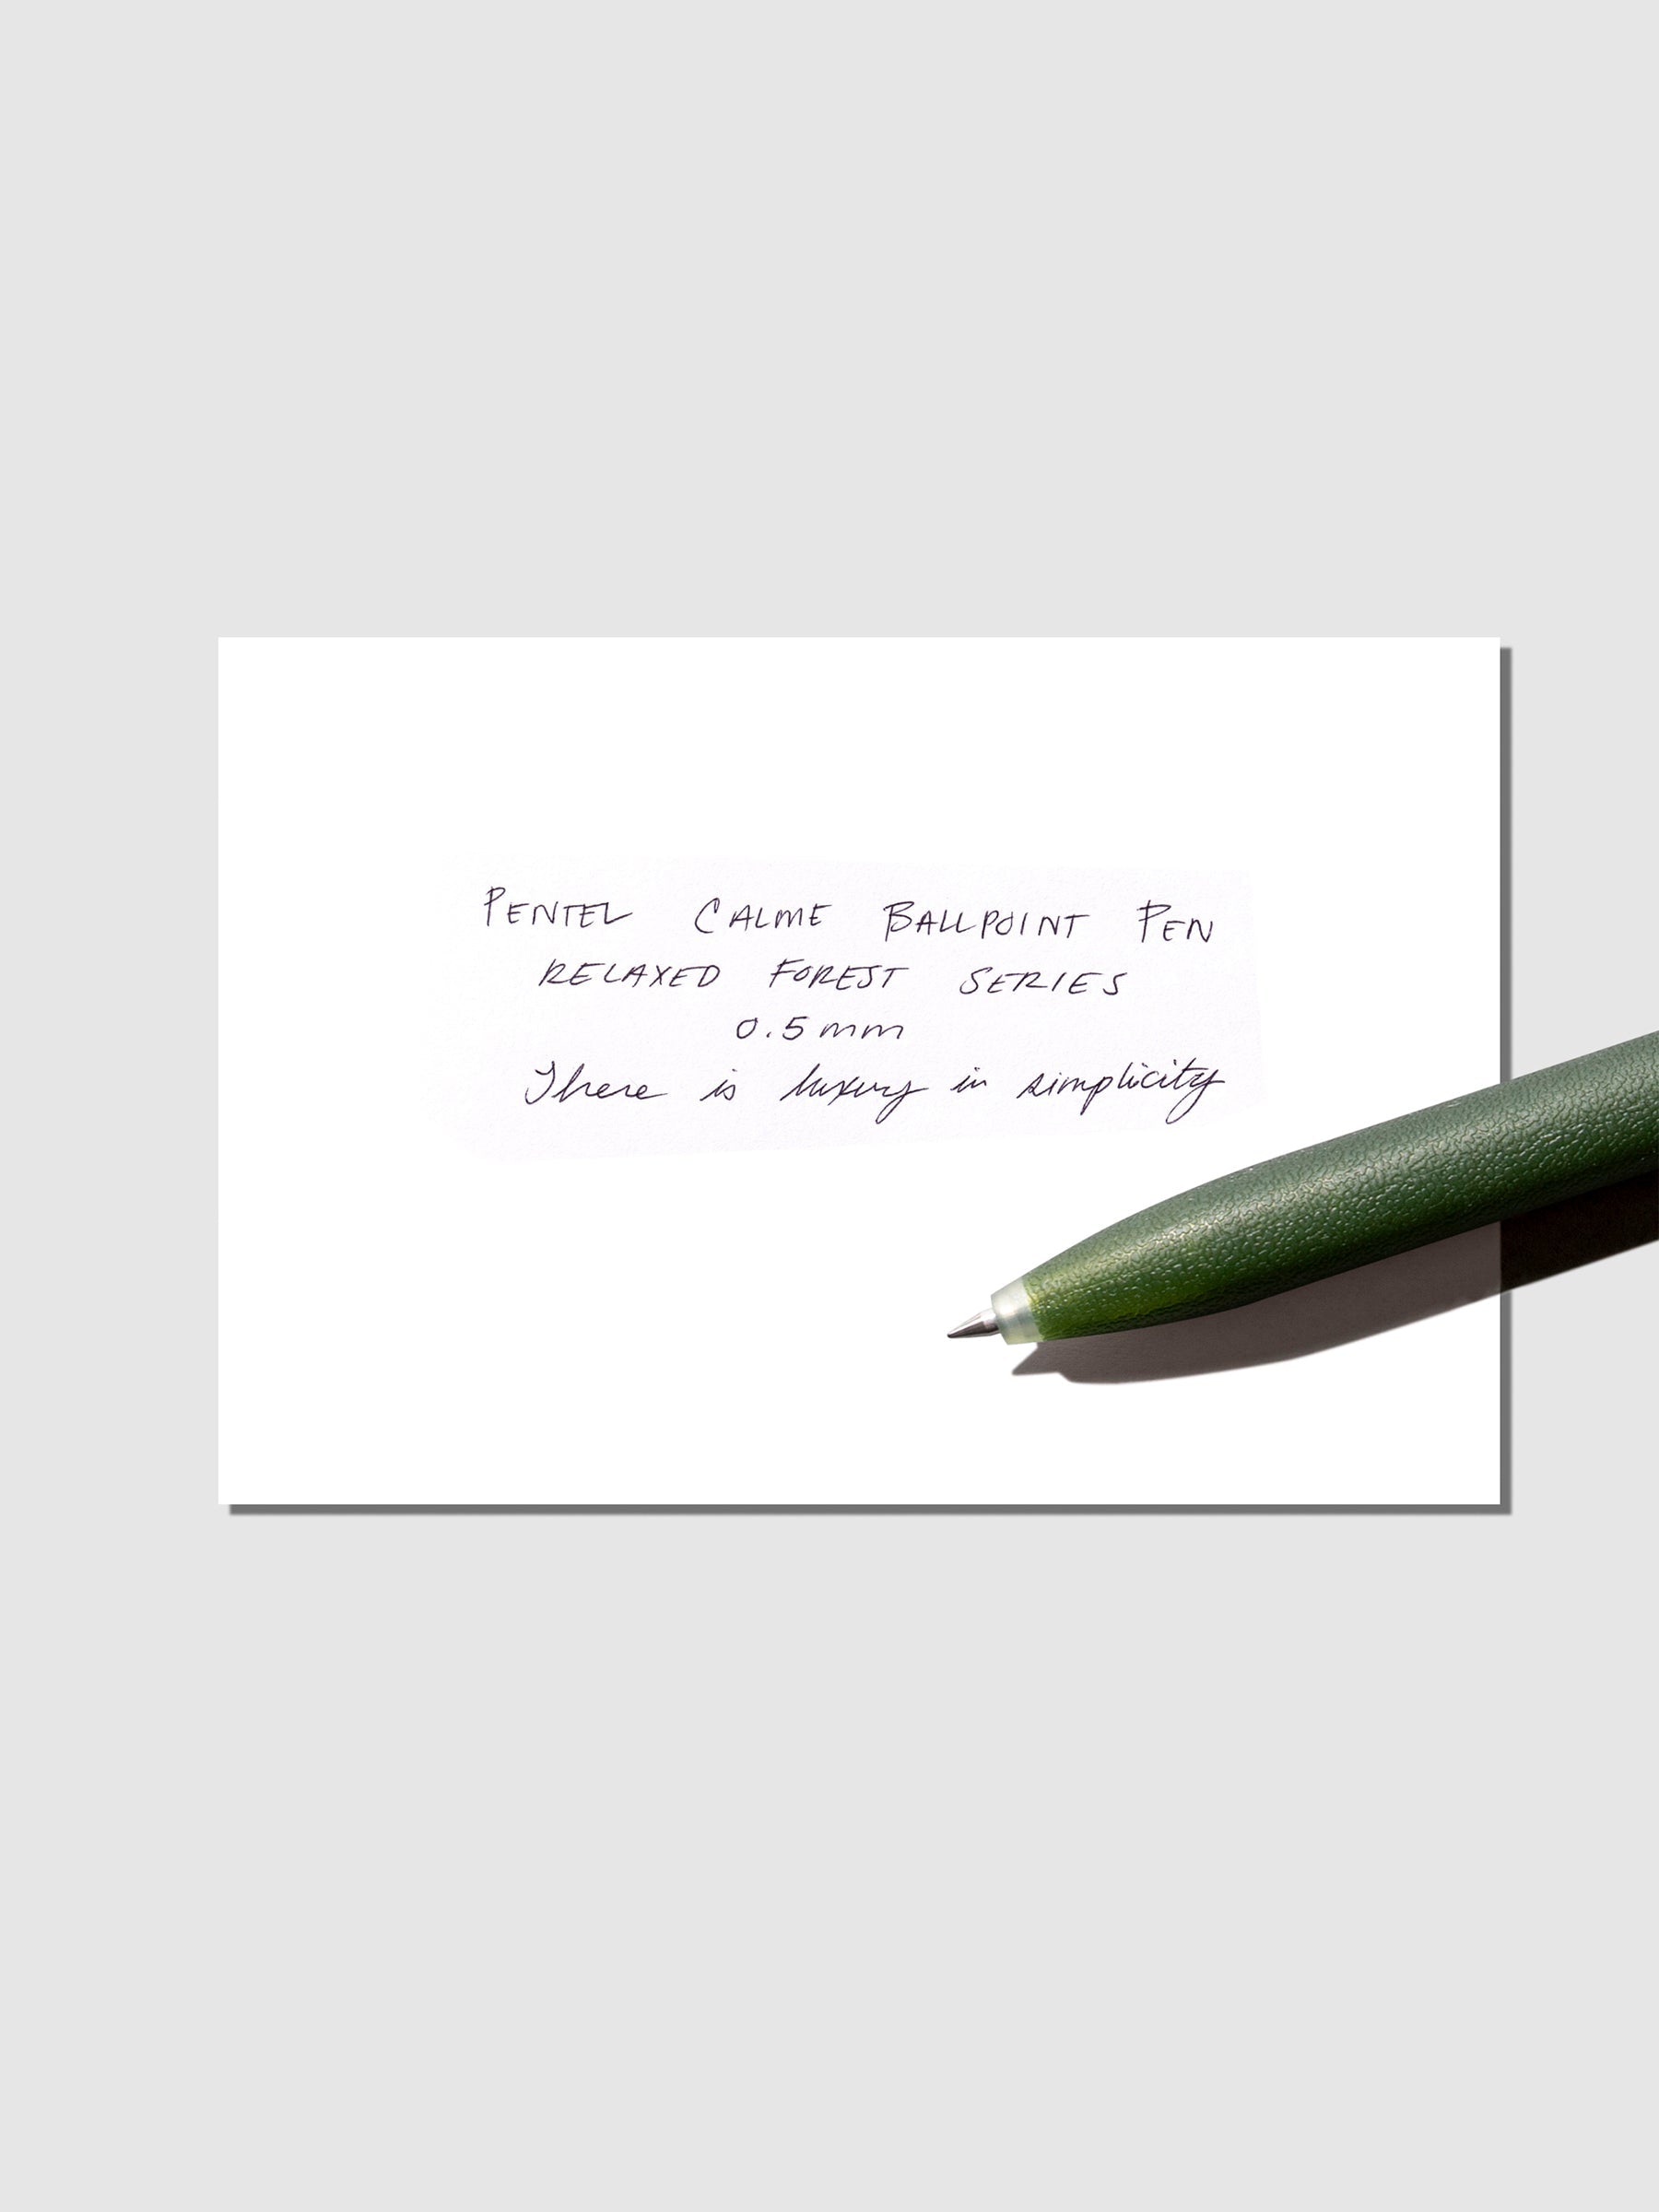 PENTEL CALME BALLPOINT PEN
RELAXED FOREST SERIES
0.5mm
There is luxury in simplicity